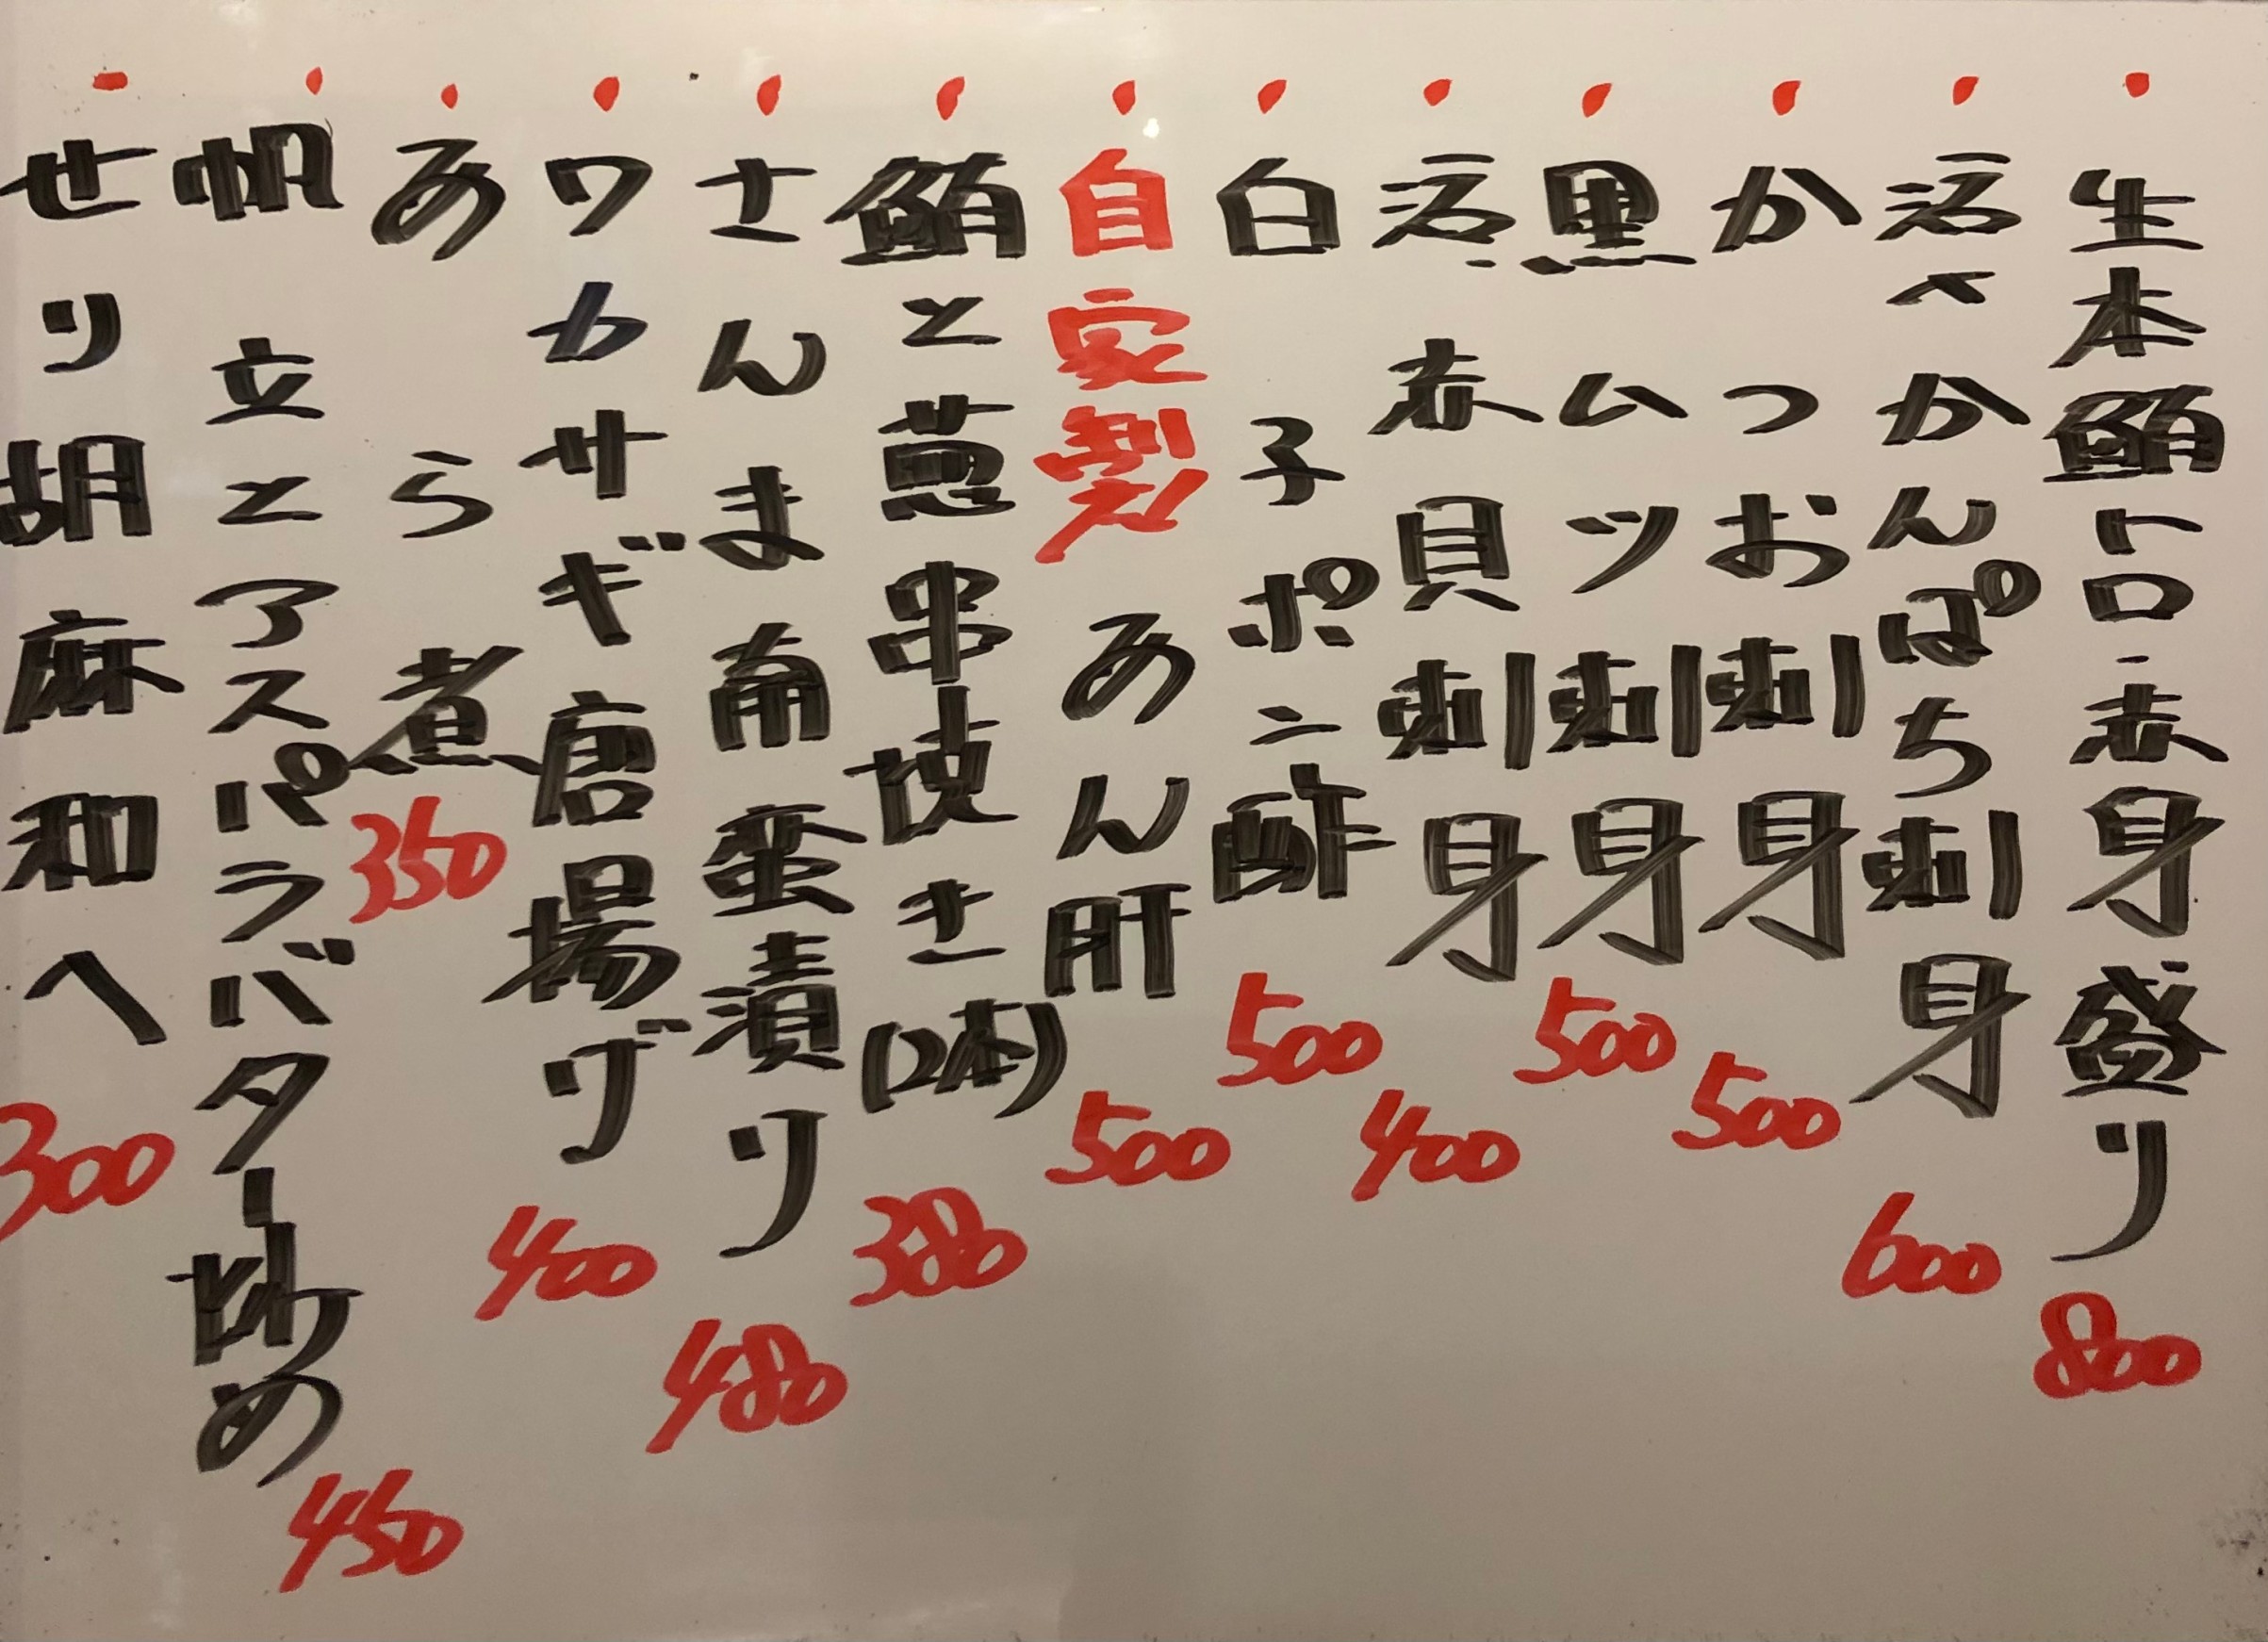 生本鮪トロ・赤身盛り 800
活〆かんぱち刺身 600
かつお刺身 500
黒ムツ刺身 500
活赤貝刺身 400
白子ポン酢 500
自家製あん肝 500
鮪と葱串焼き(2本) 380
さんま南蛮漬り 480
ワカサギ唐揚げ 400
あら煮 350
帆立とアスパラバター炒め 450
せり胡麻和へ 300